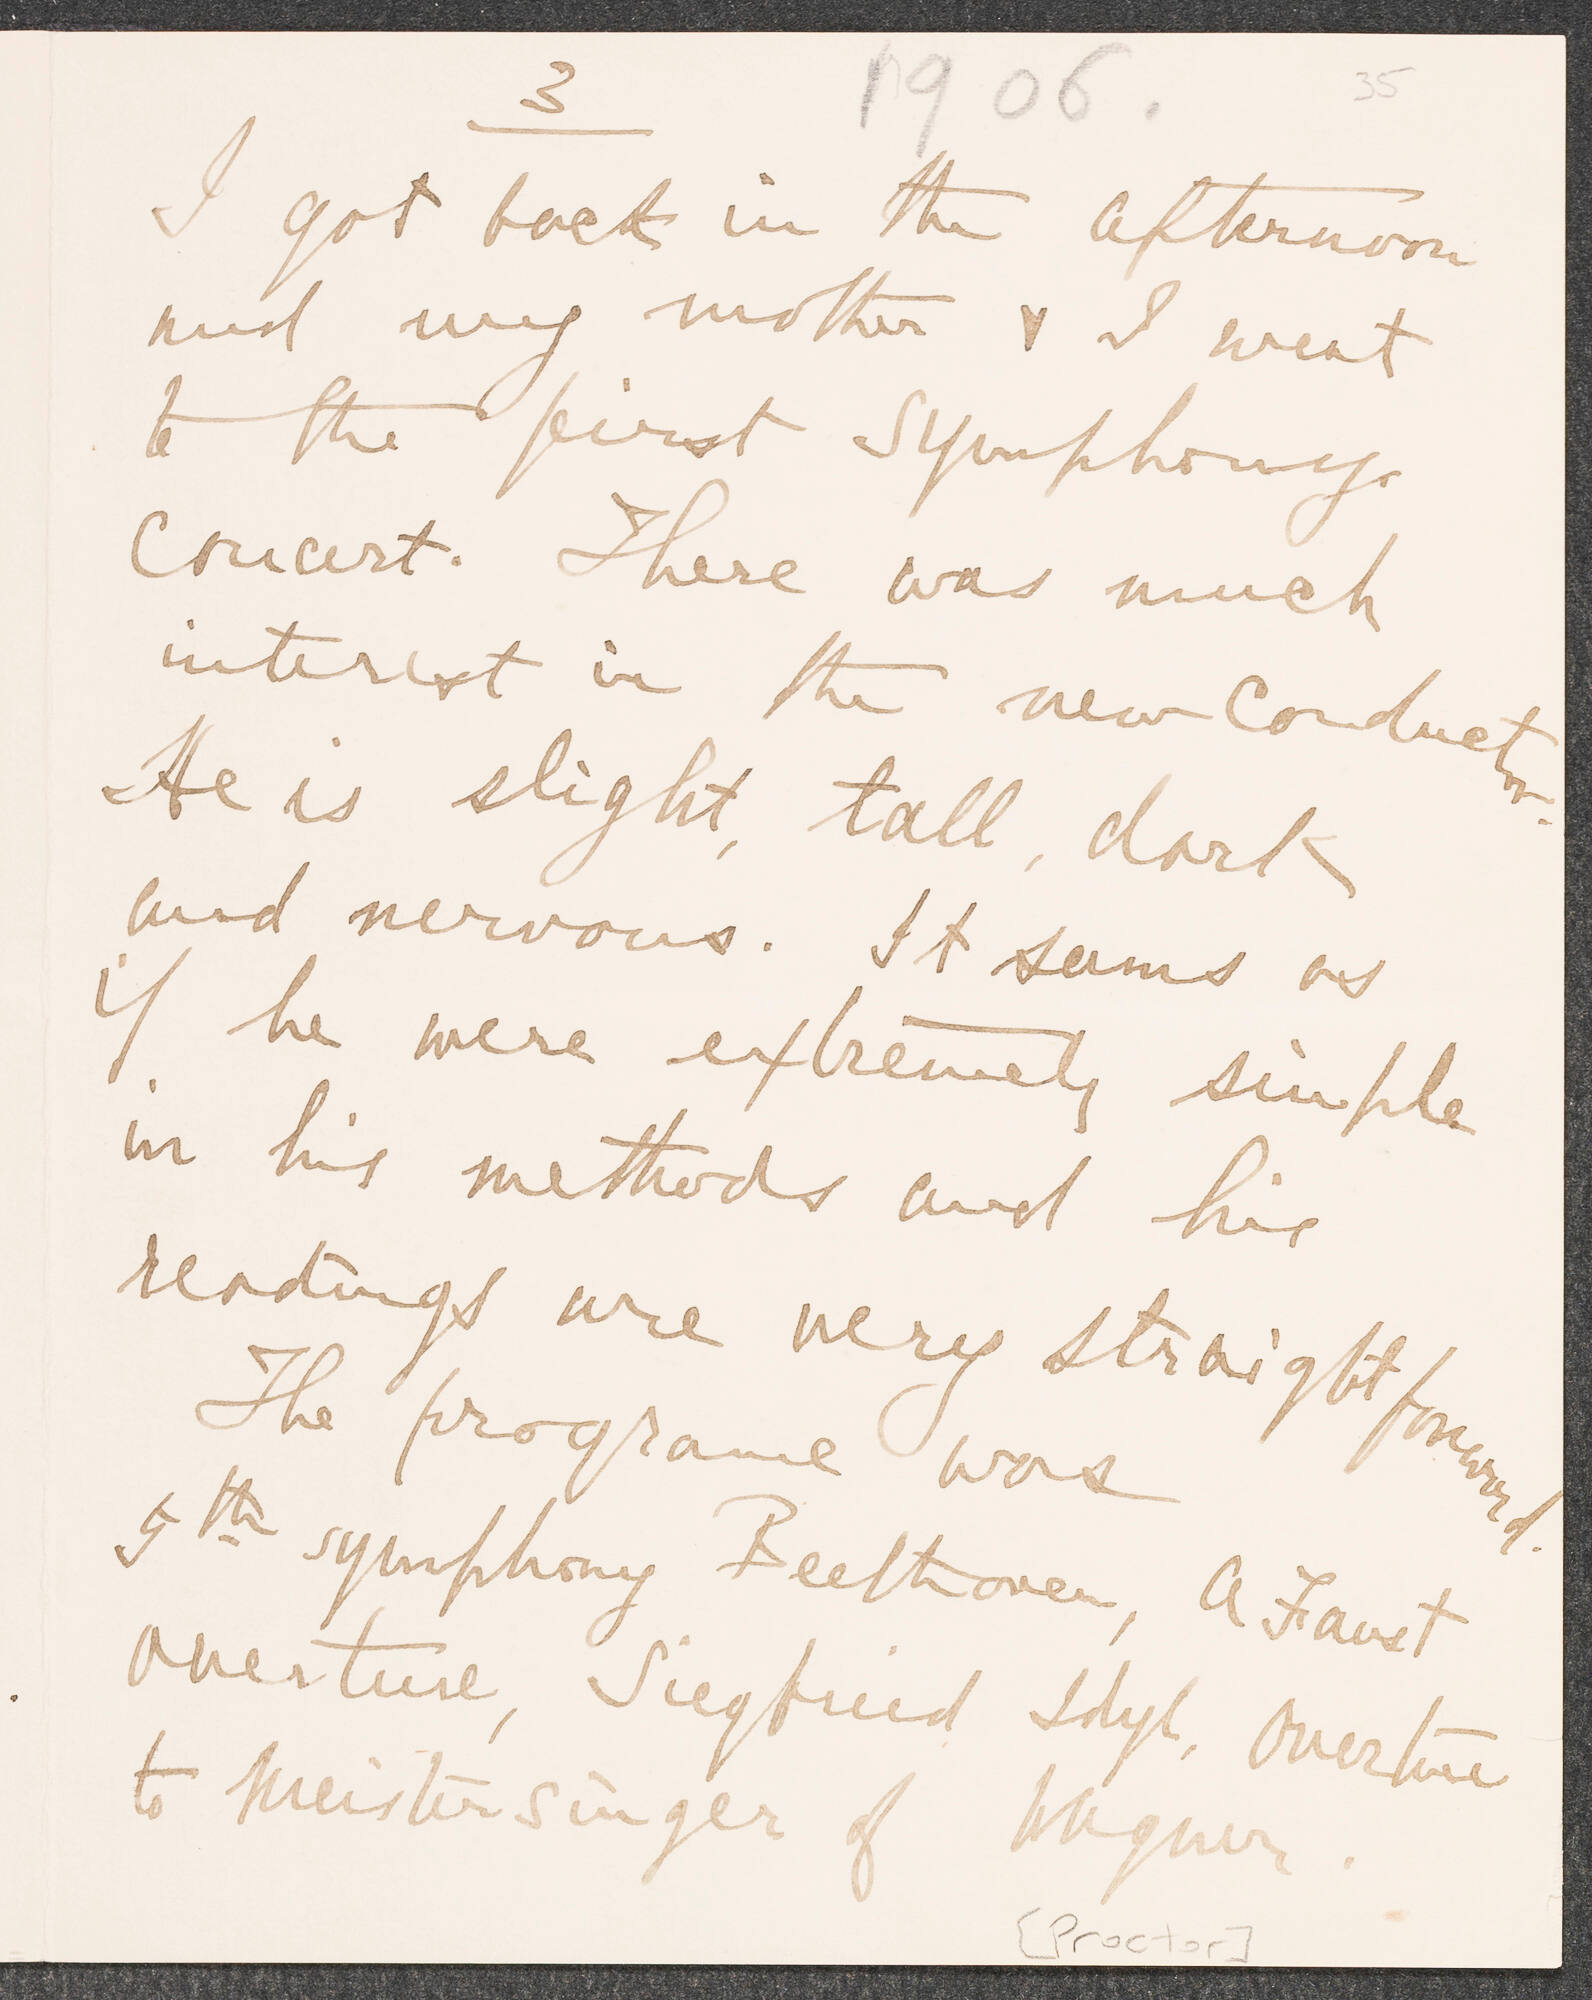 3
1906.
35
I got back in the afternoon
and my mother & I went
to the first Symphony
Concert. There was much
interest in the new Conductor.
He is slight, tall, dark
and nervous. It seems as
if he were extremely simple
in his methods and his
readings are very straightforward.
The programe was
5th symphony Beethoven, A Faust
Overture, Siegfried Idyl, Overture
to Meistersinger of Wagner.
[Proctor]